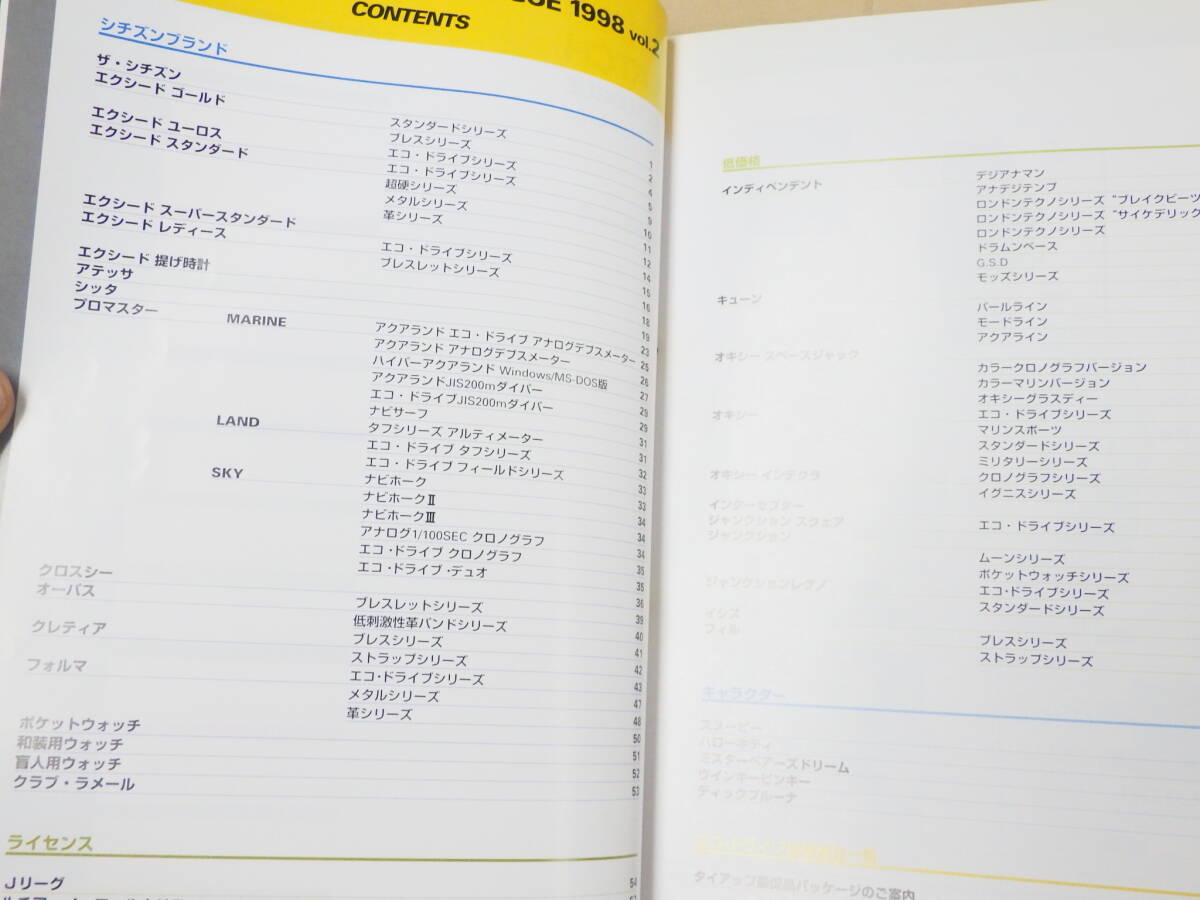 1998 vol.2
CONTENTS
シチズンブランド
ザ・シチズン
エクシード ゴールド
スタンダードシリーズ 1
ブレスシリーズ 2
エクシード ユーロス エコ・ドライブシリーズ 4
エクシード スタンダード エコ・ドライブシリーズ 5
超硬シリーズ 9
メタルシリーズ 10
革シリーズ 11
エクシード スーパースタンダード 12
エクシード レディース エコ・ドライブシリーズ 14
ブレスレットシリーズ 15
エクシード 提げ時計 16
アテッサ 18
シッタ 19
プロマスター MARINE アクアランド エコ・ドライブ アナログデプスメーター 23
アクアランド アナログデプスメーター 25
ハイパーアクアランド Windows/MS-DOS版 26
アクアランドJIS200mダイバー 27
エコ・ドライブJIS200mダイバー 29
ナビサーフ 29
LAND タフシリーズ アルティメーター 31
エコ・ドライブ タフシリーズ 31
エコ・ドライブ フィールドシリーズ 32
SKY ナビホーク 33
ナビホークⅡ 33
ナビホークⅢ 34
アナログ1/100SEC クロノグラフ 34
エコ・ドライブ クロノグラフ 34
エコ・ドライブ・デュオ 35
クロスシー 35
オーパス ブレスレットシリーズ 36
低刺激性革バンドシリーズ 39
クレティア ブレスシリーズ 40
ストラップシリーズ 41
フォルマ エコ・ドライブシリーズ 42
メタルシリーズ 43
革シリーズ 47
ポケットウォッチ 48
和装用ウォッチ 50
盲人用ウォッチ 51
クラブ・ラメール 52
53
ライセンス
Jリーグ 54
低価格
インディペンデント デジアナマン
アナデジテンプ
ロンドンテクノシリーズ“ブレイクビーツ
ロンドンテクノシリーズ“サイケデリック
ロンドンテクノシリーズ
ドラムンベース
G.S.D
モッズシリーズ
キューン パールライン
モードライン
アクアライン
オキシー スペースジャック カラークロノグラフバージョン
カラーマリンバージョン
オキシーグラスディー
オキシー エコ・ドライブシリーズ
マリンスポーツ
スタンダードシリーズ
ミリタリーシリーズ
オキシー インテグラ クロノグラフシリーズ
イグニスシリーズ
インターセプター
ジャンクション スクェア エコ・ドライブシリーズ
ジャンクション
ムーンシリーズ
ポケットウォッチシリーズ
ジャンクションレグノ エコ・ドライブシリーズ
スタンダードシリーズ
イシス
フィル ブレスシリーズ
ストラップシリーズ
キャラクター
スヌーピー
ハローキティ
ミスターベアーズドリーム
ウインキーピンキー
ディックブルーナ
タイアップ販促品パッケージのご案内